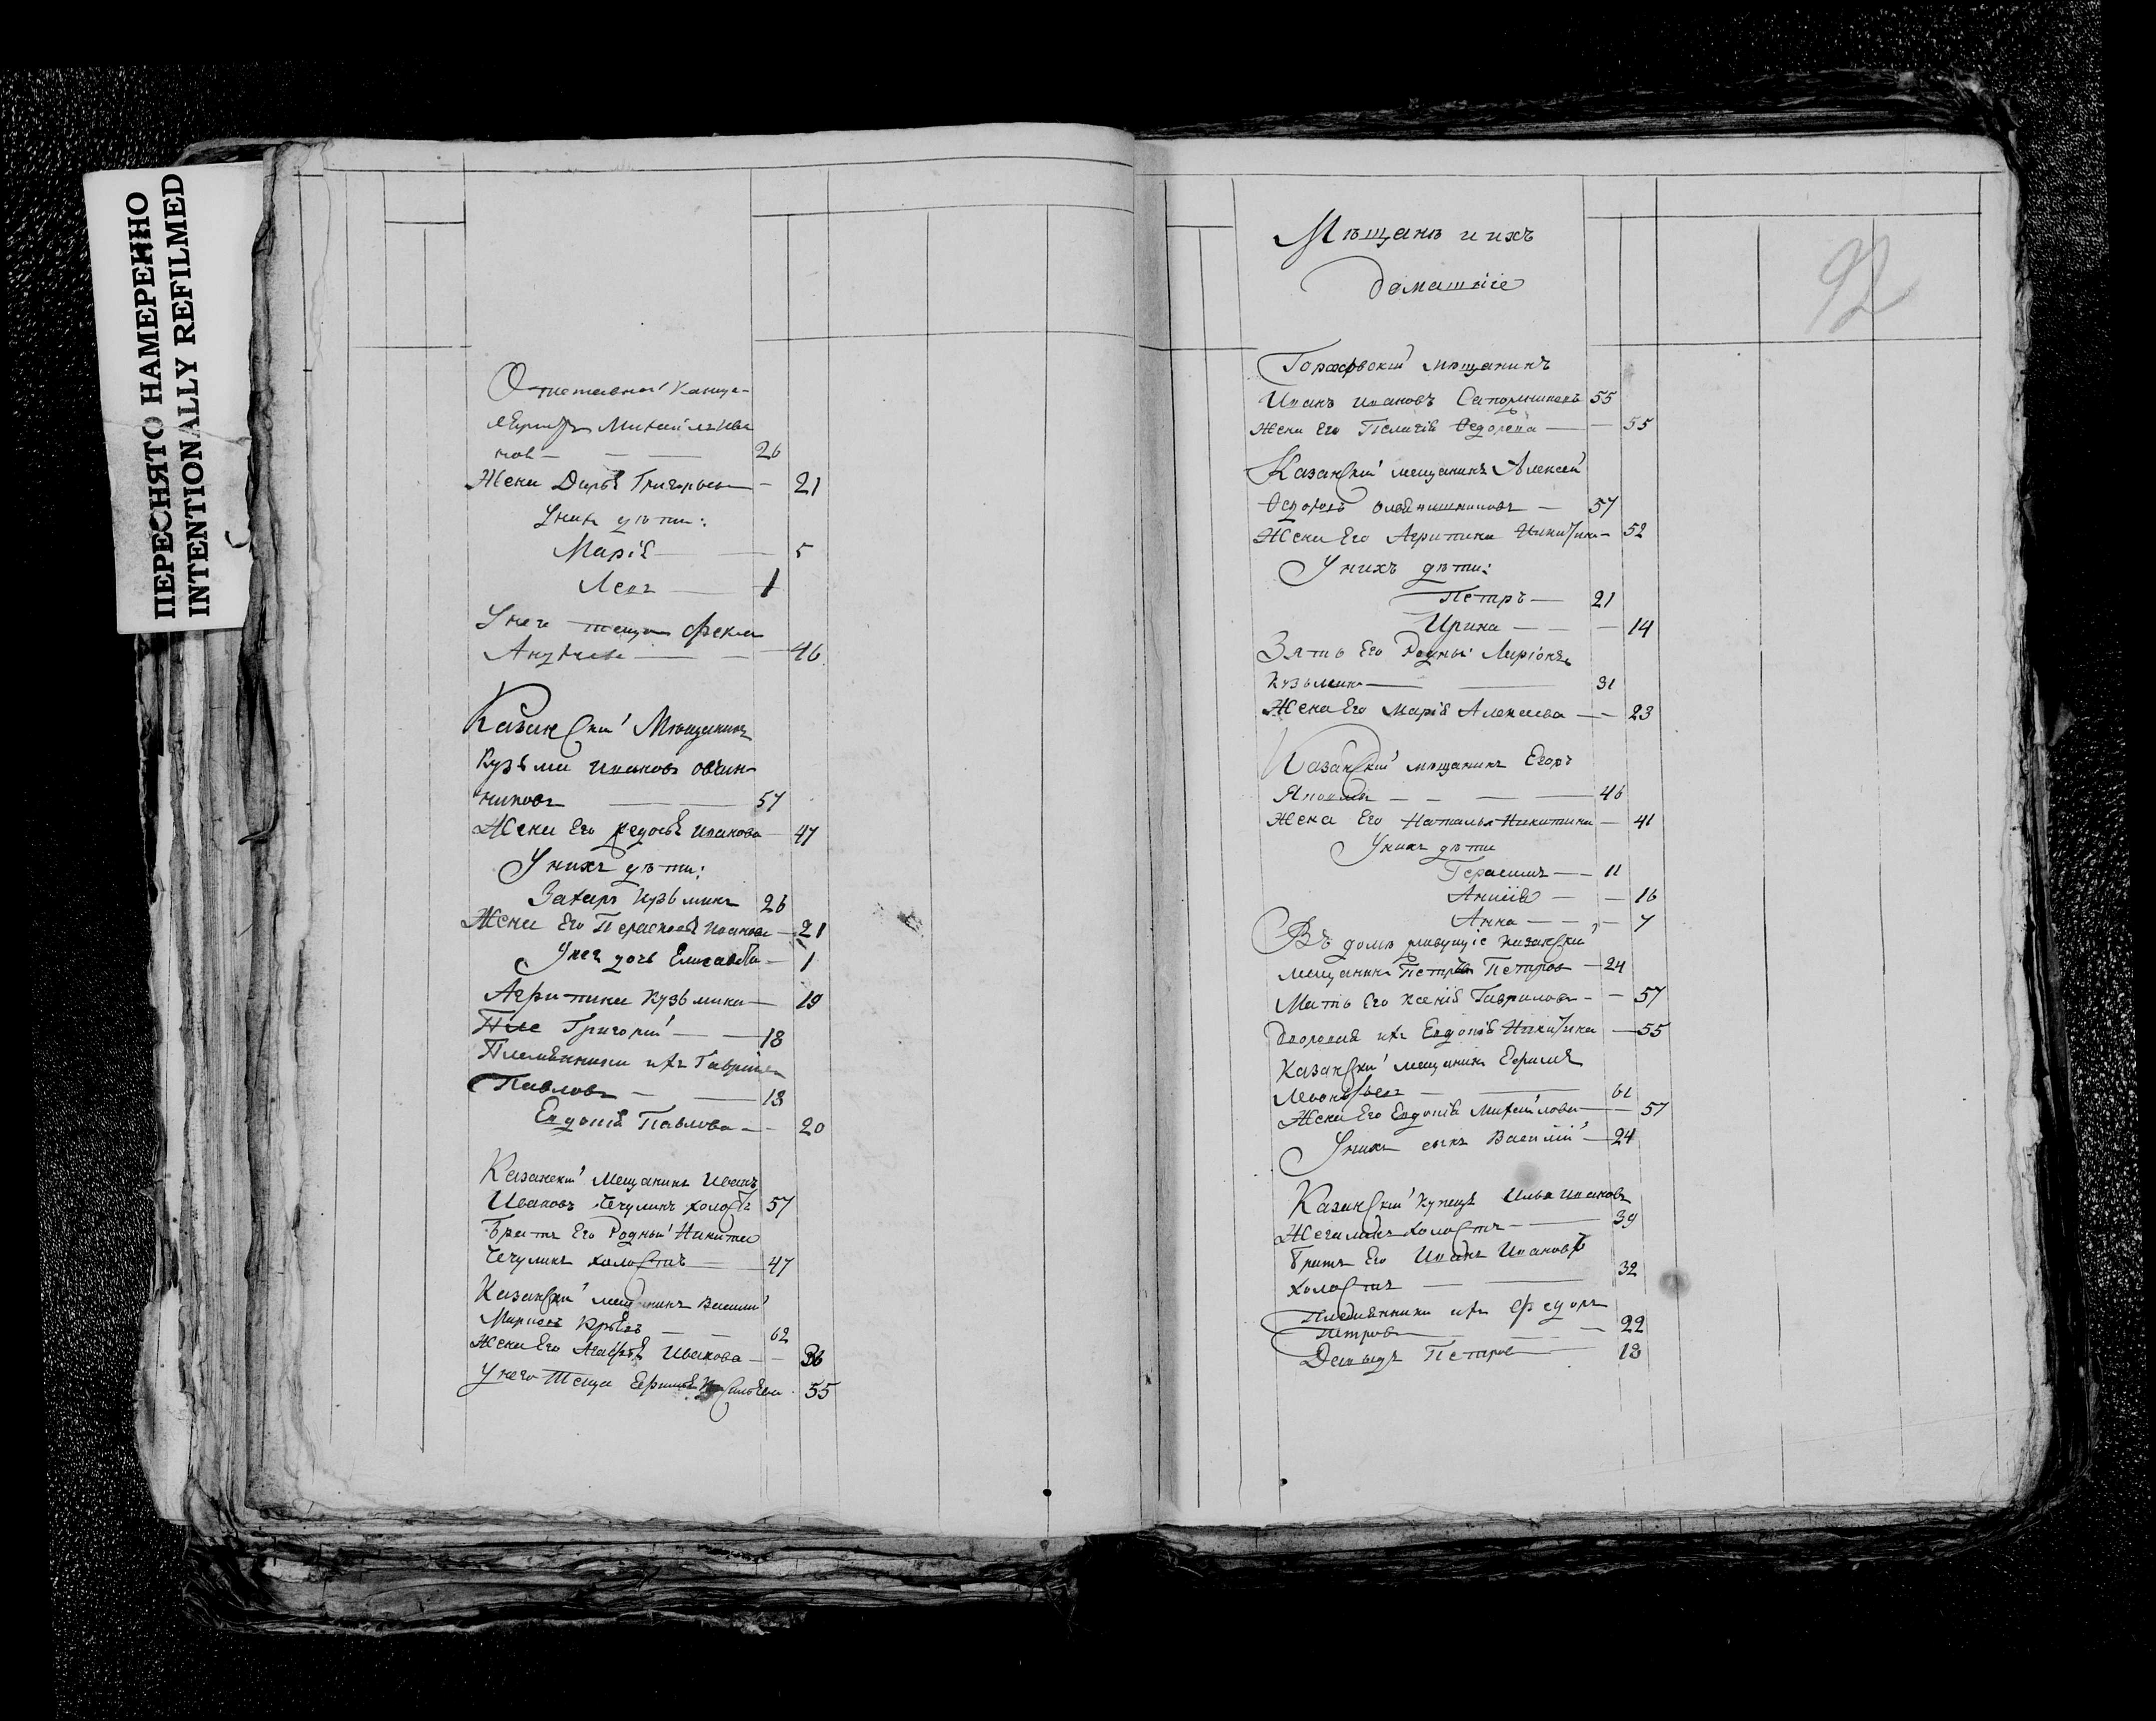 ПЕРЕСНЯТО НАМЕРЕННО
INTENTIONALLY REFILMED
Отставной Канце-
Михаила Ива
нов — 26
Жена Дарья Григорьева — 21
У них дети:
Марія — 5
Лев — 1
У него теща фекла
— 46
Казанской Мѣщанинъ
Кузьма Иванов Овчин
ников — 57
Жена Его федосья Иванова — 47
У нихъ дѣти:
Захаръ Кузьминъ 26
Жена Его Парасковья Иванова — 21
У нех дочь Елисавета — 1
Агрипина Кузьмина — 19
Григорий — 18
Племянники их Гаврила
Павловъ — 13
Евдокія Павлова — 20
Казанский Мещанинъ Иванъ
Ивановъ Чечулинъ холостъ 57
Братъ Его Родный Никита
Чечулинъ холостъ — 47
Казанский мещанинъ Василий
— 62
Жена Его Агафья Иванова — 36
У него Теща — 55
92
Мѣщанъ и ихъ
домашніе
мѣщанинъ
Иванъ Ивановъ Сапожниковъ 55
Жена Его Пелагія Федорова — 55
Казанский мещанинъ Алексей
Федотовъ — 57
Жена Его Агрипина Никитина — 52
У нихъ дѣти:
Петръ — 21
Ирина — 14
Зять Его Родный Ларіонъ
Кузьминъ — 31
Жена Его Марія Алексеева — 23
Казанский мѣщанинъ Егоръ
— 46
Жена Его Наталья Никитина — 41
У нихъ дѣти
Герасимъ — 11
— 16
Анна — 7
Въ доме живущіе Казанский
мещанинъ Петръ Петров — 24
Мать Его Ксенія Гаврилова — 57
их Евдокія Никитина — 55
Казанский мещанинъ Ефимъ
— 61
Жена Его Евдокія Михайлова — 57
У нихъ сынъ Василий — 24
Казанский Купецъ Илья Ивановъ
холостъ — 39
Братъ Его Иванъ Ивановъ
холостъ — 32
Племянники их федоръ
Петровъ — 22
Давыдъ Петров — 13